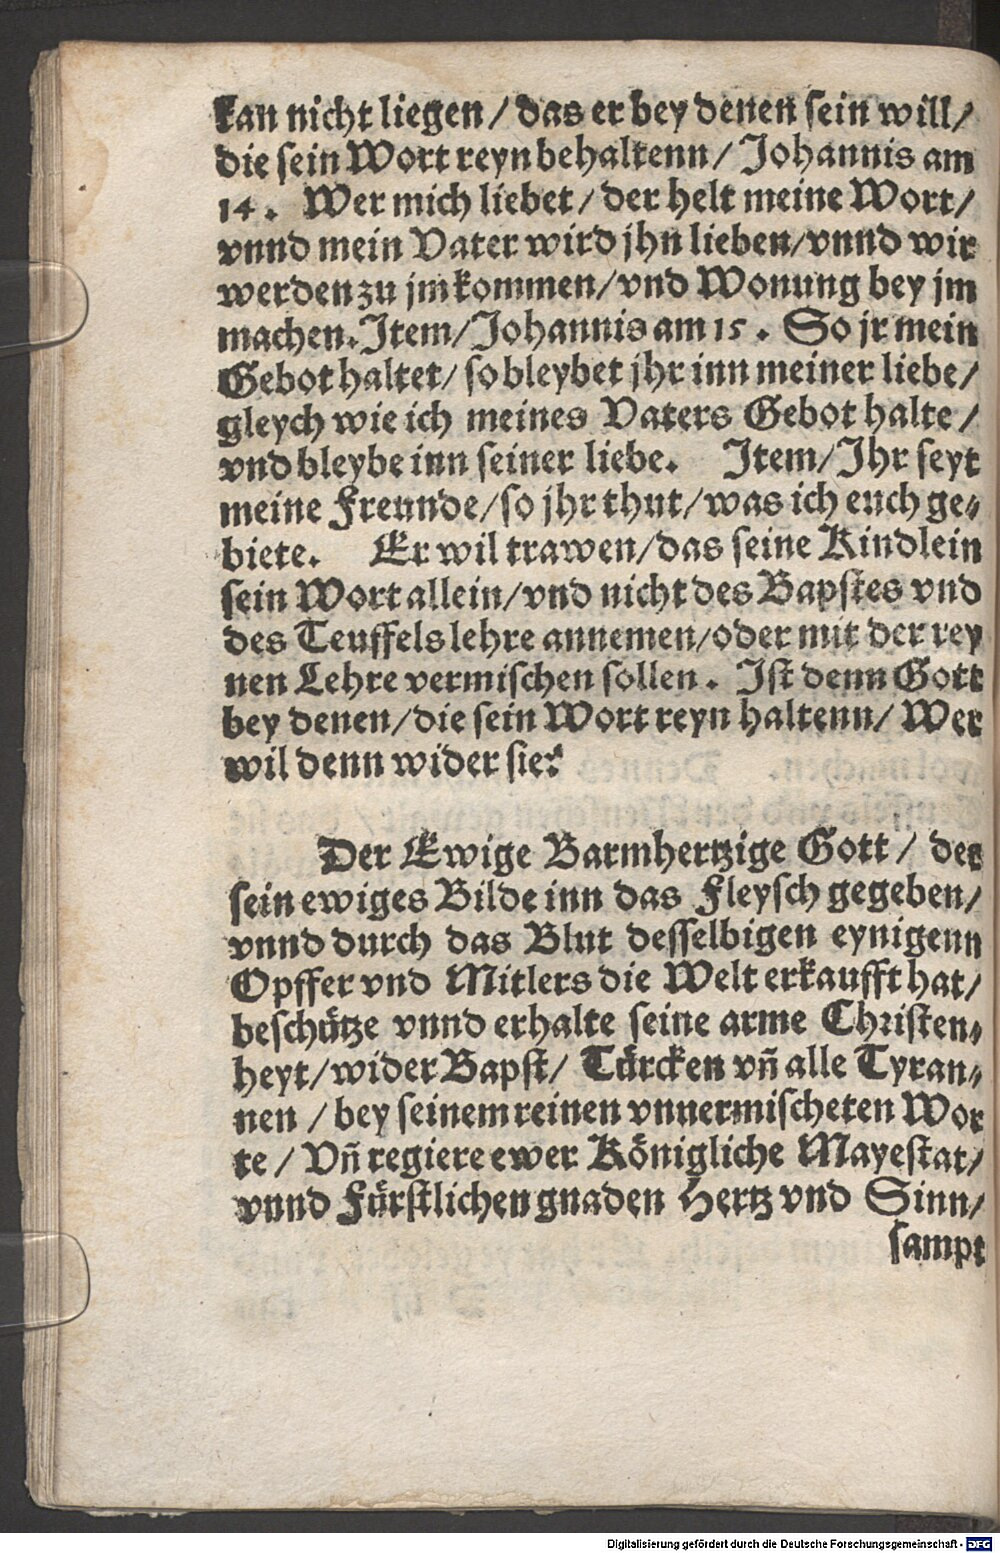 kan nicht liegen / das er bey denen sein will /
die sein Wort reyn behaltenn / Johannis am
14. Wer mich liebet / der helt meine Wort /
vnnd mein Vater wird jhn lieben / vnnd wir
werden zu jm kommen / vnd Wonung bey jm
machen. Item / Johannis am 15. So jr mein
Gebot haltet / so bleybet jhr inn meiner liebe /
gleych wie ich meines Vaters Gebot halte /
vnd bleybe inn seiner liebe. Item / Ihr seyt
meine Freunde / so jhr thut / was ich euch ge-
biete. Er wil trawen / das seine Kindlein
sein Wort allein / vnd nicht des Bapstes vnd
des Teuffels lehre annemen / oder mit der rey
nen Lehre vermischen sollen. Ist denn Gott
bey denen / die sein Wort reyn haltenn / Wer
wil denn wider sie?
Der Ewige Barmhertzige Gott / der
sein ewiges Bilde inn das Fleysch gegeben /
vnnd durch das Blut desselbigen eynigenn
Opffer vnd Mitlers die Welt erkaufft hat /
beschütze vnnd erhalte seine arme Christen-
heyt / wider Bapst / Türcken vn̄ alle Tyran-
nen / bey seinem reinen vnuermischeten Wor
te / Vn̄ regiere ewer Königliche Mayestat /
vnnd Fürstlichen gnaden Hertz vnd Sinn /
sampt
Digitalisierung gefördert durch die Deutsche Forschungsgemeinschaft - DFG